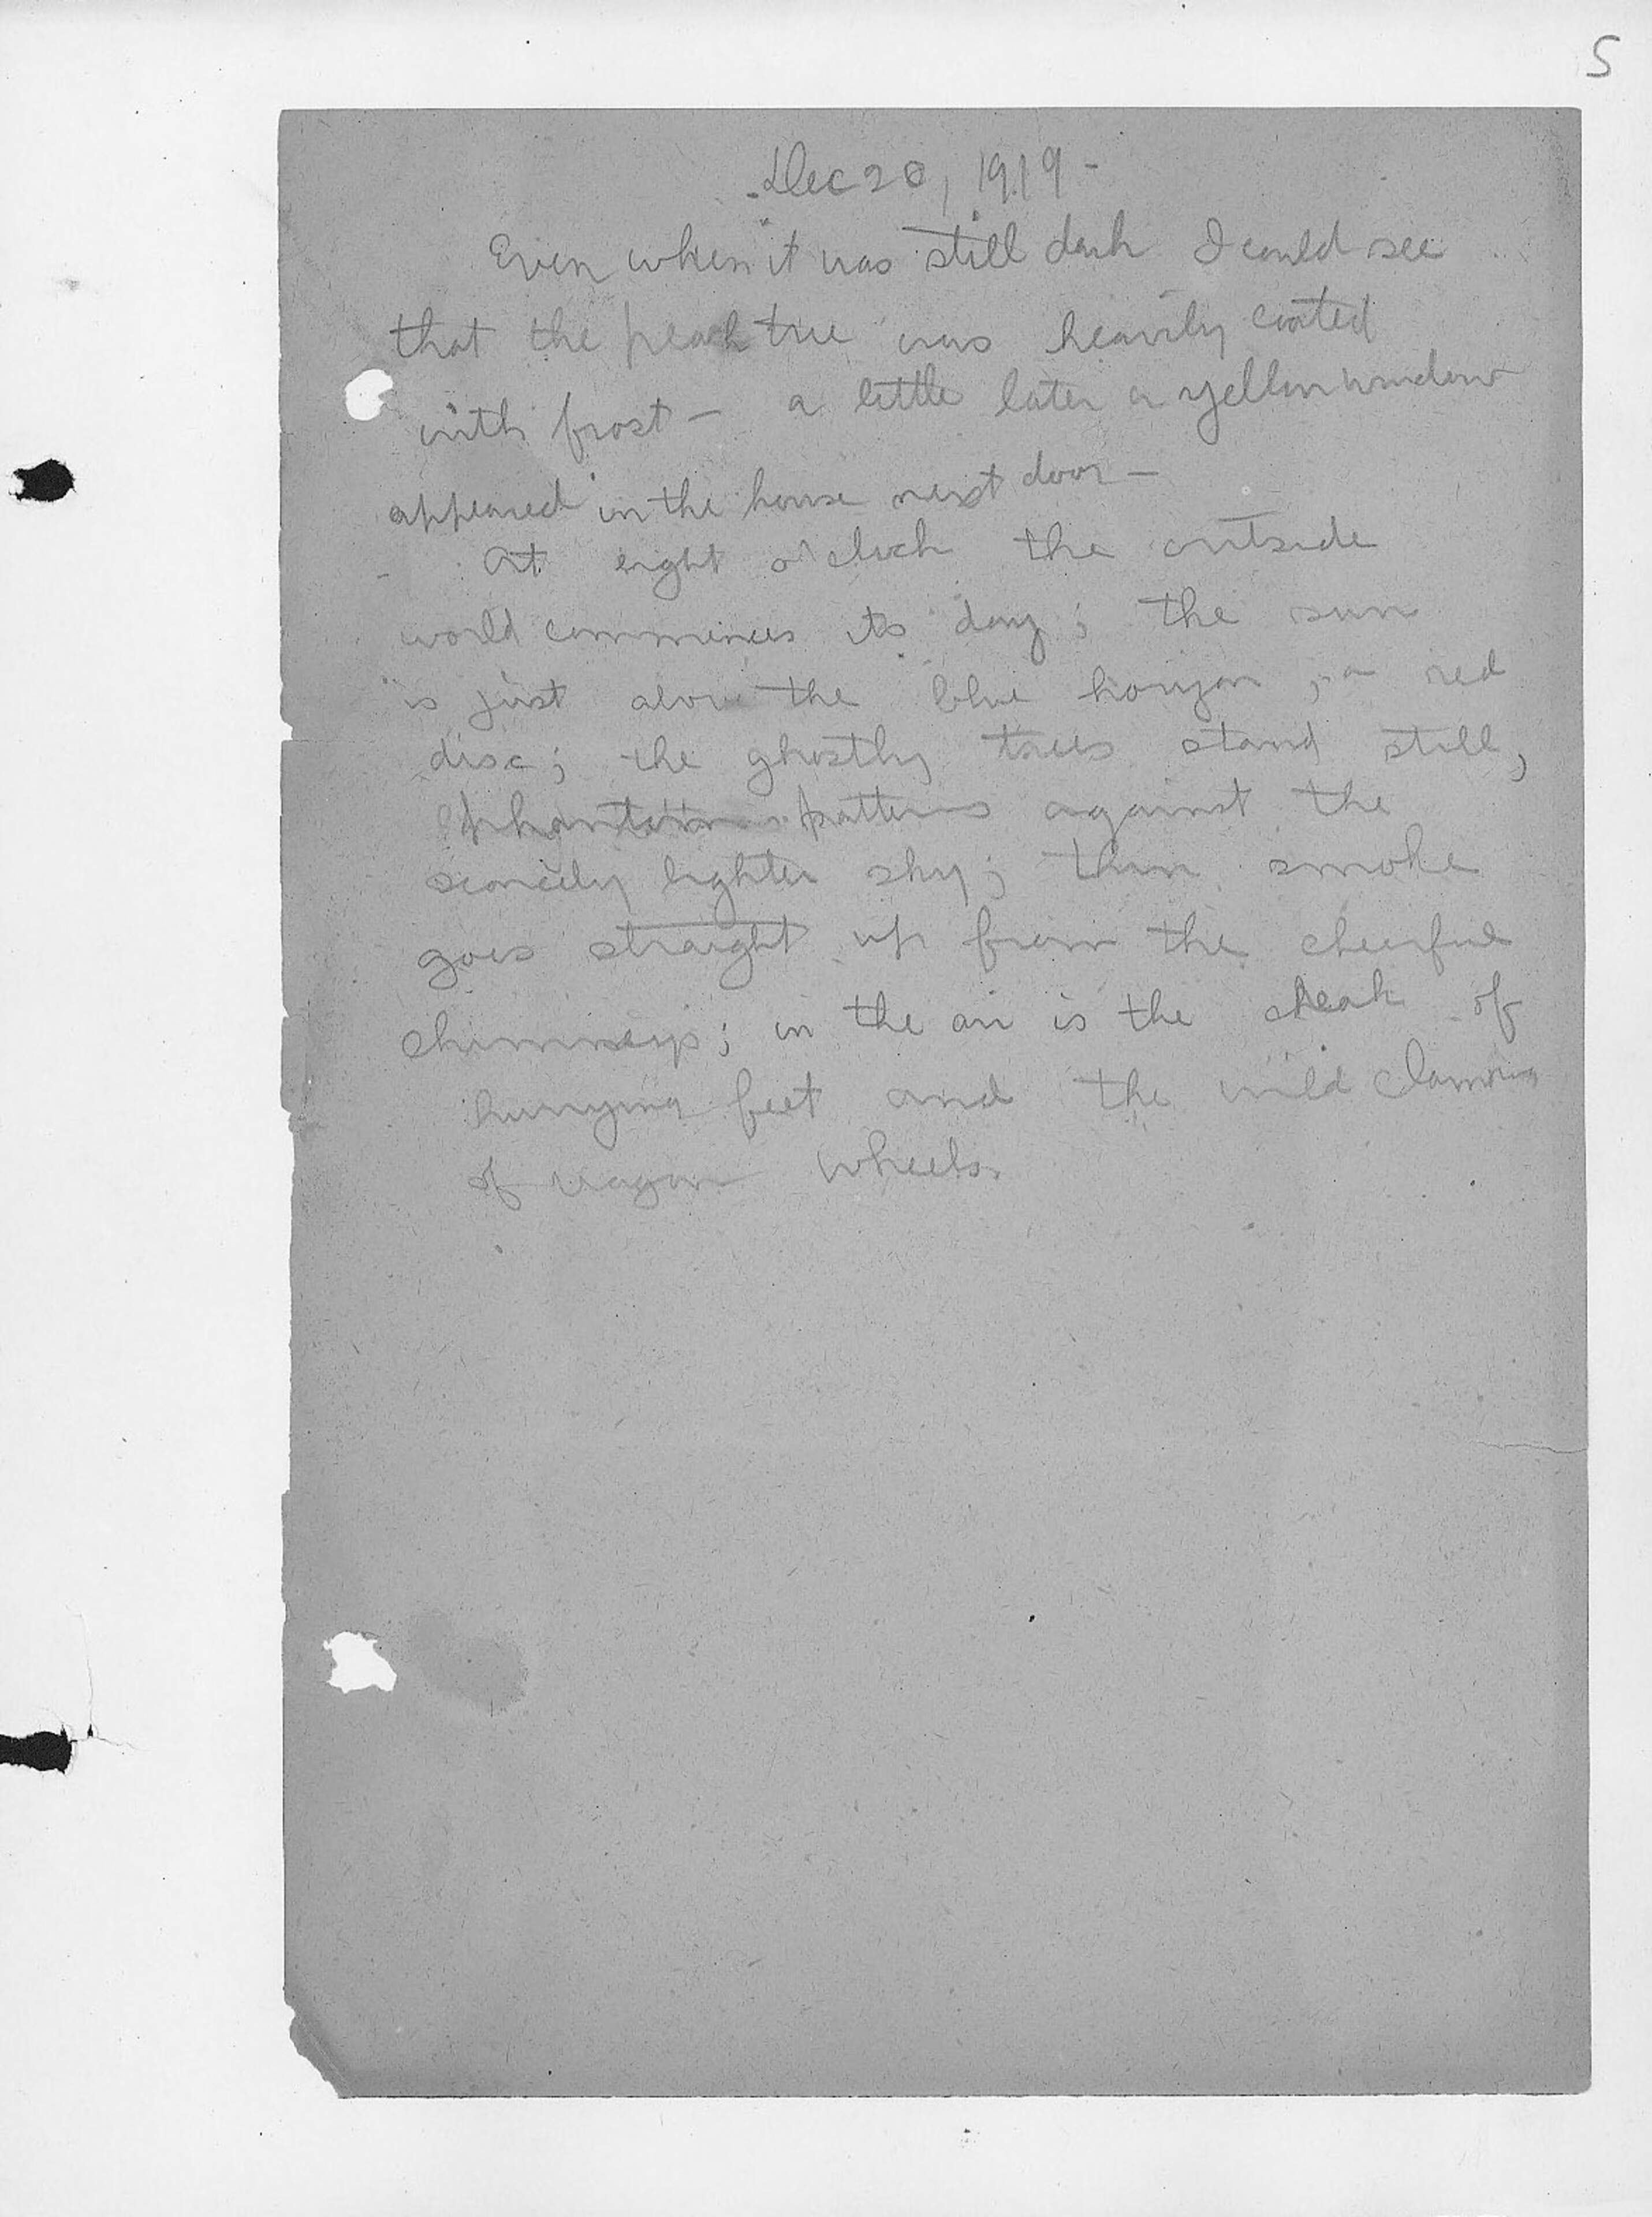 5
Dec 20, 1919 -
Even when it was still dark I could see
that the peach tree was heavily coated
with frost — a little later a yellow window
appeared in the house next door —
At eight o'clock the outside
world commences its day; the sun
is just above the blue horizon, a red
disc; the ghostly trees stand still,
phantom patterns against the
scarcely lighter sky; thin smoke
goes straight up from the cheerful
chimneys; in the air is the of
hurrying feet and the wild clamoring
of wagon wheels.